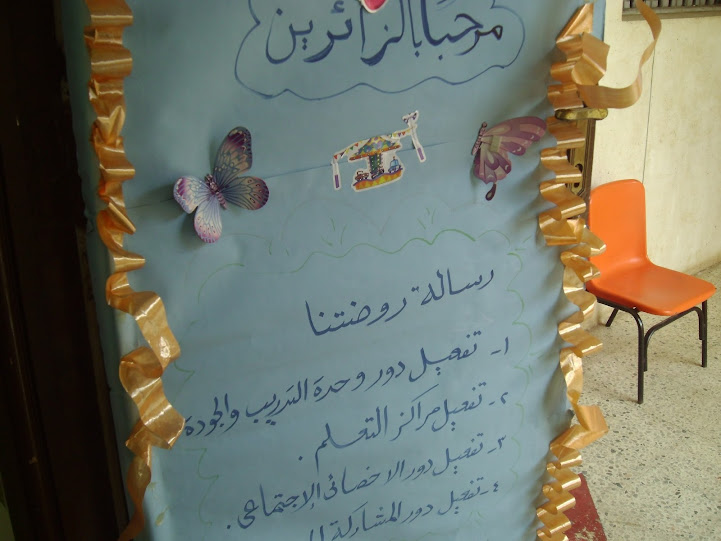 مرحبًا بالزائرين
رسالة روضتنا
١- تفعيل دور وحدة التدريب والجودة
٢- تفعيل مراكز التعلم .
٣- تفعيل دور الاخصائى الإجتماعى .
٤- تفعيل دور المشاركة